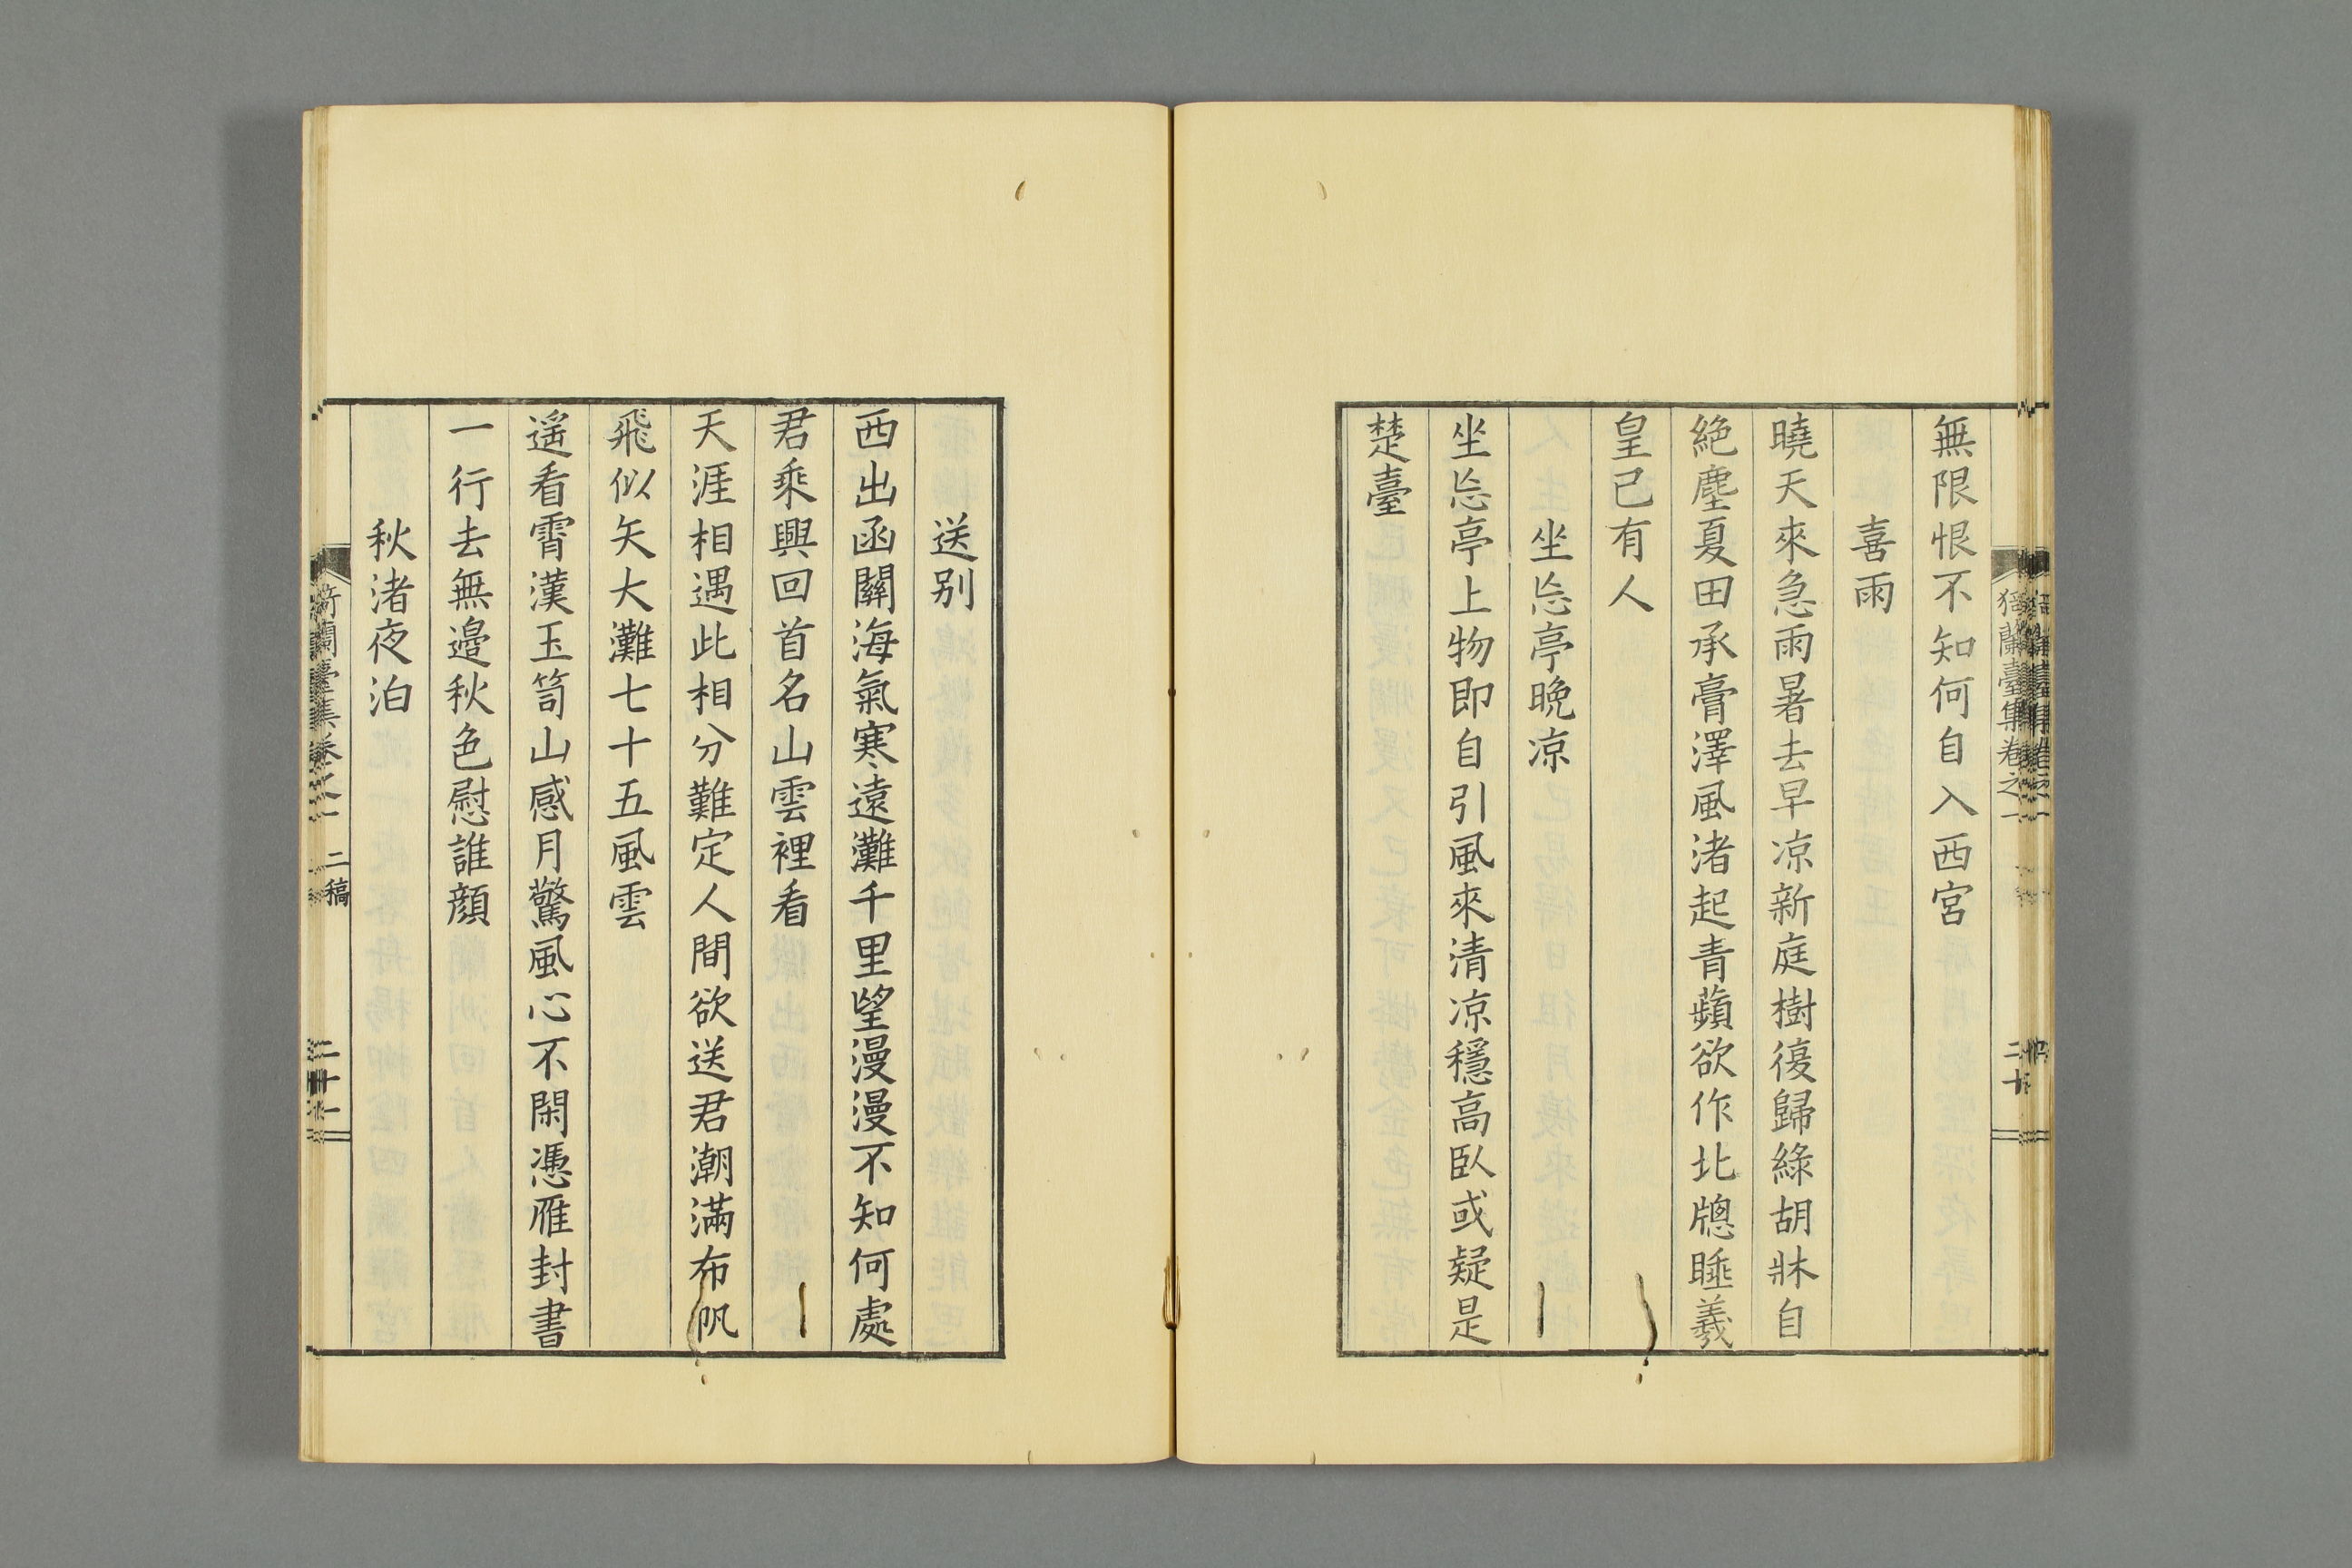 無限恨不知何自入西宮
喜雨
曉天來急雨暑去早凉新庭樹復歸綠胡牀自
絶塵夏田承膏澤風渚起青蘋欲作北牕睡羲
皇已有人
坐忘亭晩凉
坐忘亭上物即自引風來清凉穩高臥或疑是
楚臺
猗蘭臺集卷之一
二十
送別
西出函關海氣寒遠灘千里望漫漫不知何處
君乘興回首名山雲裡看
天涯相遇此相分難定人間欲送君潮滿布帆
飛似矢大灘七十五風雲
遥看霄漢玉笥山感月驚風心不閑憑雁封書
一行去無邉秋色慰誰顔
秋渚夜泊
猗蘭臺集卷之一 二稿 二十一